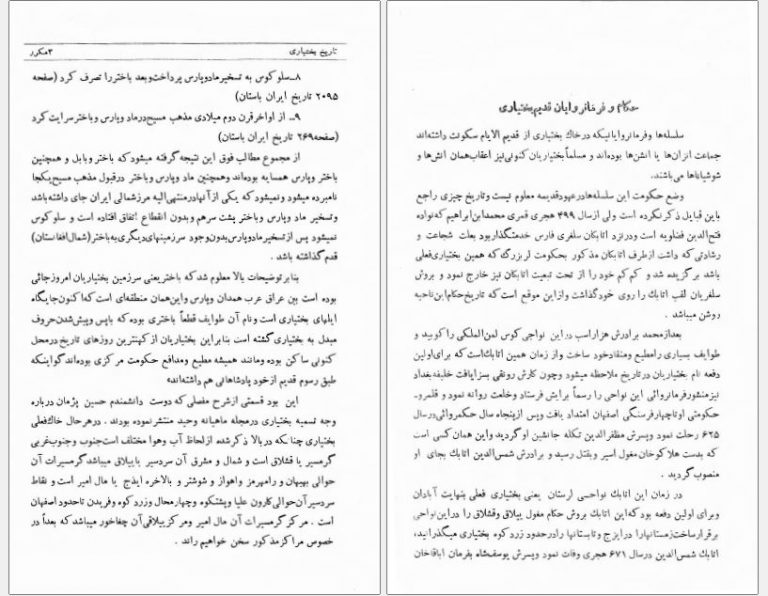 تاریخ بختیاری ۳مکرر
۸ـ سلوکوس به تسخیر مادوپارس پرداخت وبعد باختر را تصرف کرد (صفحه
۲۰۹۵ تاریخ ایران باستان)
۹ـ از اواخر قرن دوم میلادی مذهب مسیح درماد وپارس وباختر سرایت کرد
(صفحه۲۶۹ تاریخ ایران باستان)
از مجموع مطالب فوق این نتیجه گرفته میشود که باختر وبابل و همچنین
باختر وپارس همسایه بوده‌اند وهمچنین ماد وپارس وباختر درقبول مذهب مسیح یکجا
نامبرده میشود ونمیشود که یکی از آنها درمنتهی‌الیه مرزشمالی ایران جای داشته باشد
وتسخیر ماد وپارس وباختر پشت سرهم وبدون انقطاع اتفاق افتاده است و سلوکوس
نمیشود پس از تسخیر مادوپارس بدون وجود سرزمینهای دیگری به باختر (شمال افغانستان)
قدم گذاشته باشد .
بنابر توضیحات بالا معلوم شد که باختر یعنی سرزمین بختیاریان امروز جائی
بوده است بین عراق عرب همدان وپارس واین همان منطقه‌ای است که اکنون جایگاه
ایلهای بختیاری است ونام آن طوایف قطعاً باختری بوده که باپس وپیش شدن حروف
مبدل به بختیاری گشته است بنابراین بختیاریان از کهنترین روزهای تاریخ درمحل
کنونی ساکن بوده ومانند همیشه مطیع ومدافع حکومت مرکزی بوده‌اند گو اینکه
طبق رسوم قدیم از خود پادشاهانی هم داشته‌اند»
این بود قسمتی از شرح مفصلی که دوست دانشمندم حسین پژمان درباره
وجه تسمیه بختیاری درمجله ماهیانه وحید منتشر نموده بودند . درهرحال خاک فعلی
بختیاری چنانکه دربالا ذکر شده از لحاظ آب وهوا مختلف است جنوب وجنوب غربی
گرمسیر یا قشلاق است و شمال و مشرق آن سردسیر یا ییلاق میباشد گرمسیرات آن
حوالی بهبهان و رامهرمز واهواز و شوشتر و بالاخره ایذج یا مال امیر است و نقاط
سردسیر آن حوالی کارون علیا وپشتکوه وچهارمحال وزرد کوه وفریدن تاحدود اصفهان
است . مرکز گرمسیرات آن مال امیر ومرکز ییلاقی آن چغاخور میباشد که بعداً در
خصوص مراکز مذکور سخن خواهیم راند .
حکام و فرمانروایان قدیم بختیاری
سلسله‌ها وفرمانروایانیکه درخاک بختیاری از قدیم الایام سکونت داشته‌اند
جماعت انزان‌ها یا انشن‌ها بوده‌اند و مسلماً بختیاریان کنونی نیز اعقاب همان انش‌ها و
شوشیاناها می‌باشند.
وضع حکومت این سلسله‌ها درعهود قدیمه معلوم نیست وتاریخ چیزی راجع
باین قبایل ذکر نکرده است ولی ازسال ۴۹۹ هجری قمری محمدابن ابراهیم که نواده
فتح‌الدین فضلویه است ودرنزد اتابکان سلغری فارس خدمتگذار بود بعلت شجاعت و
رشادتی که داشت ازطرف اتابکان مذکور بحکومت لر بزرگ که همین بختیاری فعلی
باشد برگزیده شد و کم کم خود را از تحت تبعیت اتابکان نیز خارج نمود و بروش
سلغریان لقب اتابک را روی خود گذاشت واز این موقع است که تاریخ حکام این ناحیه
روشن میباشد .
بعدازمحمد برادرش هزاراسب دراین نواحی کوس لمن‌الملکی را کوبید و
طوایف بسیاری رامطیع ومنقاد خود ساخت واز زمان همین اتابک است که برای اولین
دفعه نام بختیاریان درتاریخ ملاحظه میشود وچون کارش رونقی بسزا یافت خلیفه بغداد
نیز منشور فرمانروائی این نواحی را رسماً برایش فرستاد وخلعت روانه نمود و قلمرو
حکومتی او تاچهار فرسنگی اصفهان امتداد یافت وپس ازپنجاه سال حکمروائی درسال
۶۲۵ رحلت نمود وپسرش مظفرالدین تکله جانشین او گردید واین همان کسی است
که بدست هلاکوخان مغول اسیر وبقتل رسید و برادرش شمس‌الدین اتابک بجای او
منصوب گردید .
در زمان این اتابک نواحی لرستان یعنی بختیاری فعلی بنهایت آبادان
وبرای اولین دفعه بود که این اتابک بروش حکام مغول ییلاق وقشلاق را دراین نواحی
برقرار ساخت زمستانها را درایزج وتابستانها را درحدود زرد کوه بختیاری میگذرانید،
اتابک شمس‌الدین درسال ۶۷۱ هجری وفات نمود وپسرش یوسفشاه بفرمان اباقاخان